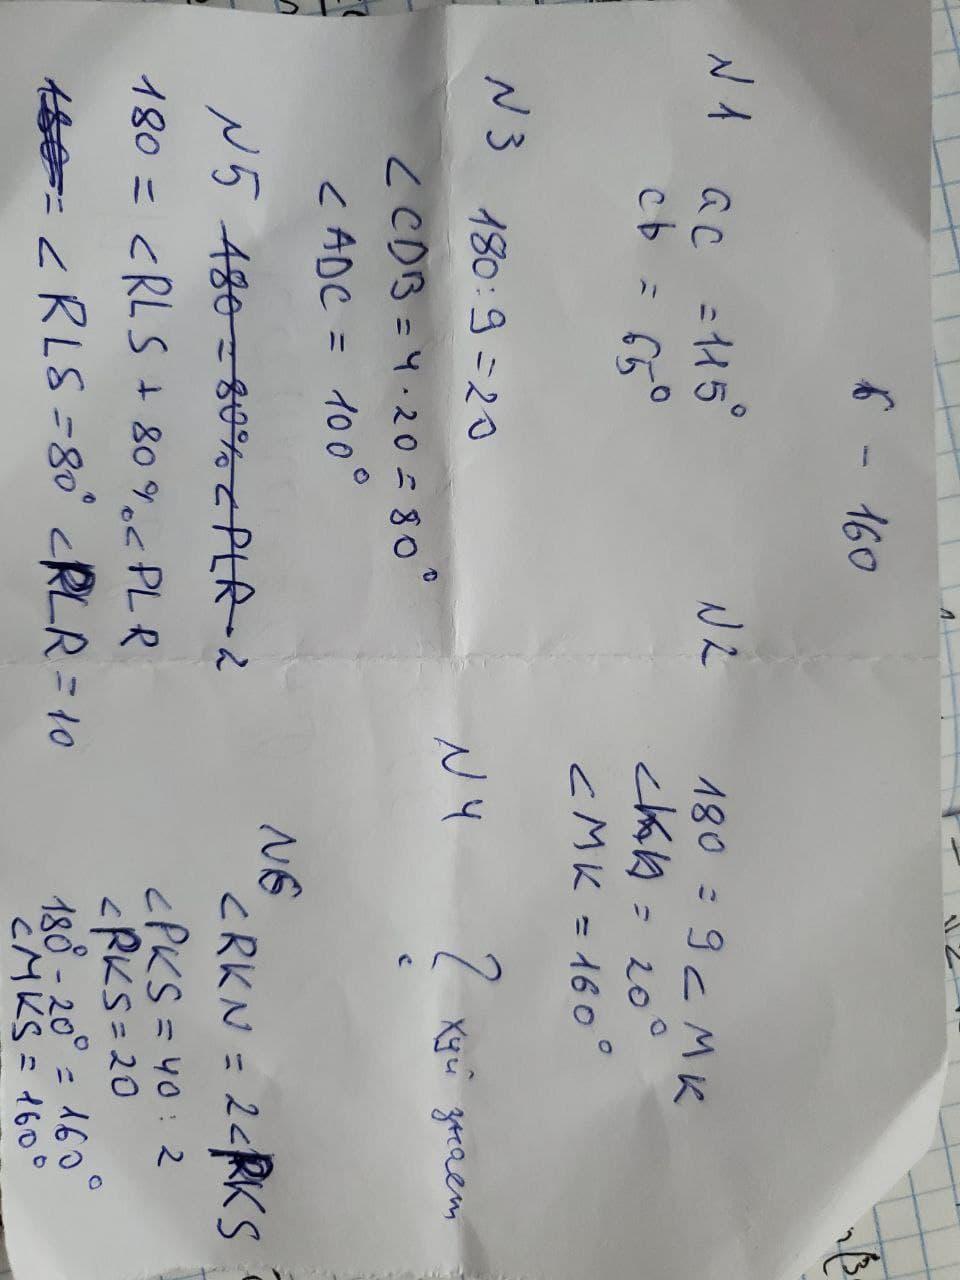 б - 160
N1 ac = 115°
cb = 65°
N2
180 = 9 < MK
= 20°
< MK = 160°
N3 180 : 9 = 20
< CDB = 4 · 20 = 80°
< ADC = 100°
N4 ? хуй знает
N5 180 = 80% < PLR - 2
180 = < RLS + 80% < PLR
180 = < RLS = 80° < PLR = 10
N6
< RKN = 2 < RKS
< PKS = 40 : 2
< RKS = 20
180° - 20° = 160°
< MKS = 160°